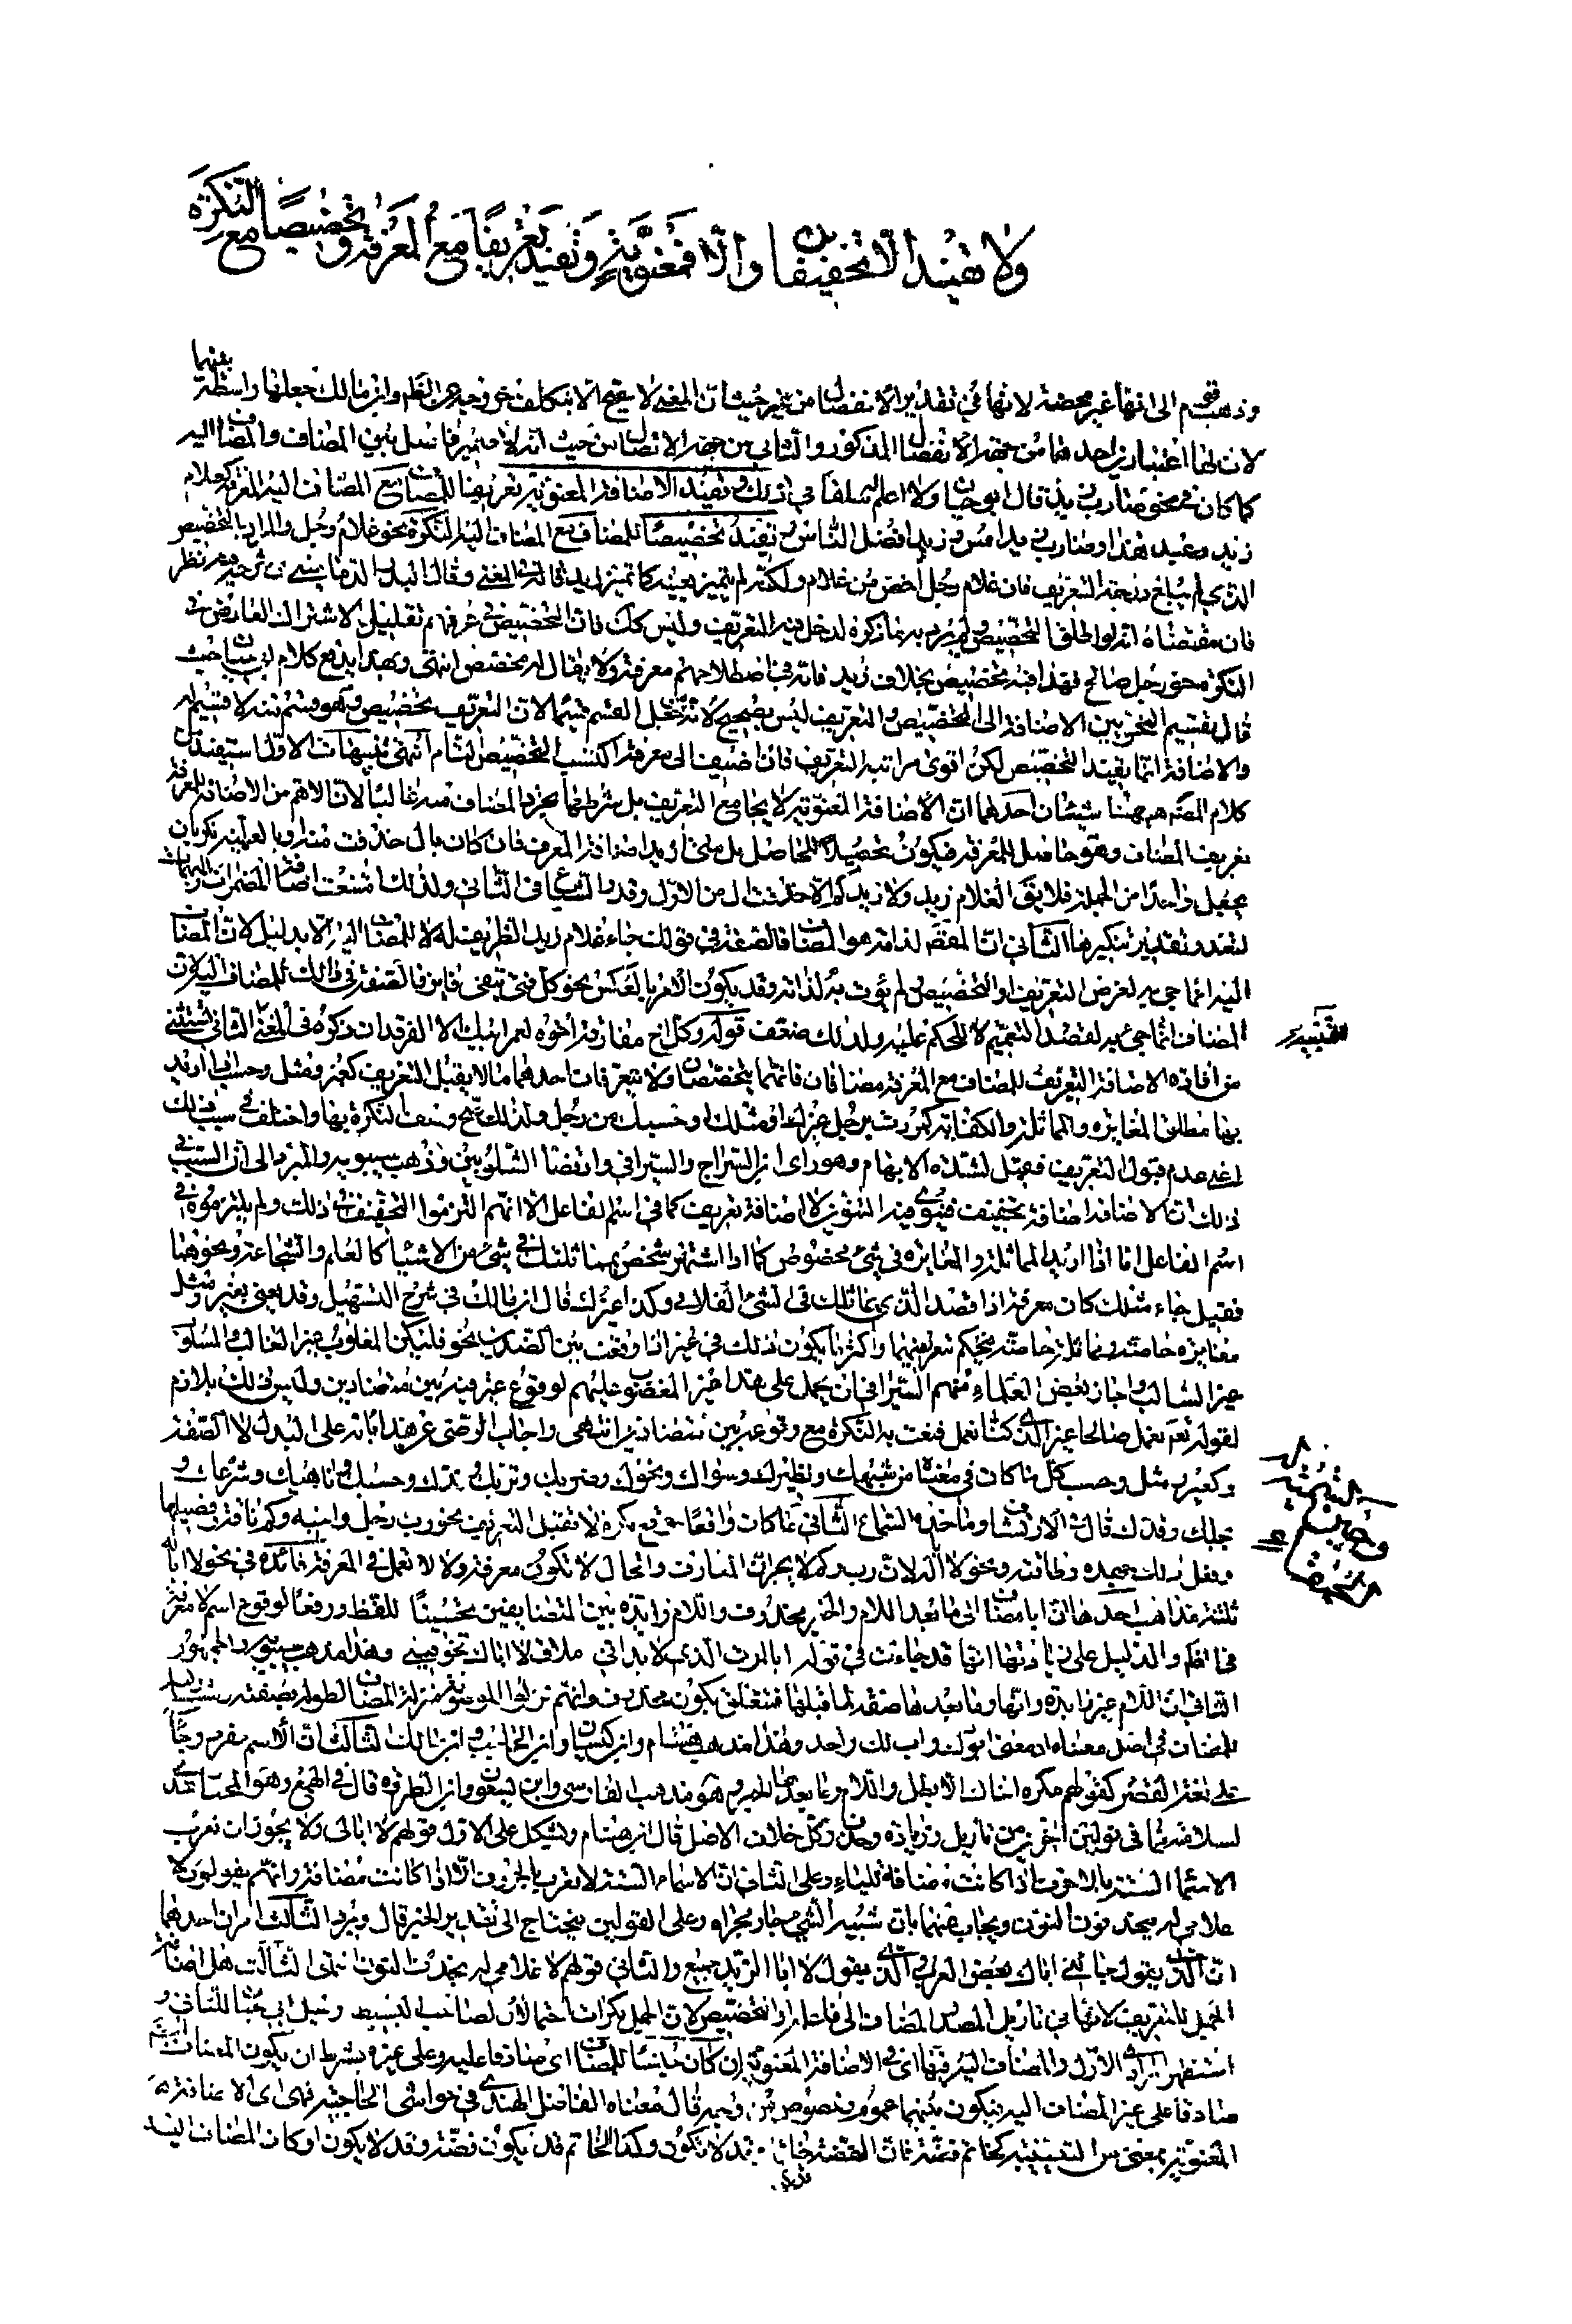 ولا تفيد الا تخفيفا والّا فمعنويّة وتفيد تعريفًا مع المعرفة وتخصيصًا مع النّكرة
وذهب قوم الى انها غير محضة لانها في تقدير الانفصال من غير حيث ان المعنى لا يصح الا بتكلف خروجه عن الظاهر وابن مالك جعلها واسطة بينهما
لان لها اعتبارين احدهما من جهة الانفصال المذكور والثاني من جهة الاتصال من حيث انه لا ضمير فاصل بين المضاف والمضاف اليه
كما كان في نحو ضارب زيد قال ابو حيان ولا اعلم له سلفا في ذلك وتفيد الاضافة المعنوية تعريفا للمضاف مع المضاف اليه المعرفة كغلام
زيد وعبد هذا وضارب زيد امس زيد افضل الناس وتفيد تخصيصًا للمضاف مع المضاف اليه النكرة نحو غلام رجل والمراد بالتخصيص
الذي لم يبلغ درجة التعريف فان غلام رجل اخص من غلام ولكنه لم يتميز بعينه كما تميز زيد قاله في المغني وقال البدر الدماميني في شرحه وفيه نظر
فان مقتضاه انه لو اطلق التخصيص ولم يرد به ما ذكره لدخل فيه التعريف وليس كذلك فان التخصيص في عرفهم تقليل الاشتراك العارض في
النكرة نحو رجل صالح فهذا فيه تخصيص بخلاف زيد فانه في اصطلاحهم معرفة ولا يقال له تخصص انتهى وبهذا يدفع كلام ابي حيان حيث
قال تقسيم النحويين الاضافة الى التخصيص والتعريف ليس بصحيح لانه جعل القسم قسيما لان التعريف تخصيص فهو قسم منه لا قسيم له
والاضافة انما تفيد التخصيص لكن اقوى مراتبه التعريف فان اضيف الى معرفة اكتسب التخصيص التام انتهى تنبيهات الاول استفيد من
كلام المصنف هيهنا شيئان احدهما ان الاضافة المعنوية لا تجامع التعريف بل شرطها تجريد المضاف منه غالبا لان الاهم من الاضافة للمعرفة
تعريف المضاف وهو حاصل للمعرفة فيكون تحصيلا للحاصل بل متى اريد اضافة المعرف فان كان بال حذفت منه او بالعلمية نكر بان
يجعل واحدًا من الجملة فلا يقال الغلام زيد ولا زيدكم الا حذفت ال من الاول وقدر الشياع في الثاني ولذلك امتنعت اضافة المضمرات والمبهمات
لتعذر تقدير تنكيرها الثاني ان المقصود لذاته هو المضاف فالصفة في قولك جاء غلام زيد الظريف له لا للمضاف اليه الا بدليل لان المضاف
اليه انما جيء به لغرض التعريف او التخصيص ولم يؤت به لذاته وقد يكون الامر بالعكس نحو كل فتى يتقي فائز فالصفة في ذلك للمضاف اليه لان
المضاف انما جيء به لقصد التعميم لا للحكم عليه ولذلك ضعف قوله وكل اخ مفارقه اخوه لعمر ابيك الا الفرقدان ذكره في المغني الثاني استثني
من افادة الاضافة التعريف للمضاف مع المعرفة مضافان فانهما يتخصصان ولا يتعرفان احدهما ما لا يقبل التعريف كغير ومثل وحسب اذا اريد
بها مطلق المغايرة والمماثلة والكفاية كمررت برجل غيرك او مثلك او حسبك من رجل ولذلك صح وصف النكرة بها واختلف في سبب ذلك
اعني عدم قبول التعريف فقيل لشدة الابهام وهو راى ابن السراج والسيرافي وارتضاه الشلوبين وذهب سيبويه والمبرد الى ان السبب في
ذلك ان الاضافة اضافة تخفيف فينوى فيه التنوين لا اضافة تعريف كما في اسم الفاعل الا انهم التزموا التخفيف في ذلك ولم يلتزموه في
اسم الفاعل اما اذا اريد المماثلة والمغايرة في شيء مخصوص كما اذا اشتهر شخص بمماثلتك في شيء من الاشياء كالعلم والشجاعة ونحوهما
فقيل جاء مثلك كان معرفة اذا قصد الذي يماثلك في الشيء الفلاني وكذا غيرك قال ابن مالك في شرح التسهيل وقد يعنى بغير ومثل
مغايرة خاصة ومماثلة خاصة فيحكم بتعريفهما واكثر ما يكون ذلك في غير اذا وقعت بين الضدين نحو فليكن المغلوب غير الغالب والمسلوب
غير السالب واجاز بعض العلماء منهم السيرافي ان يحمل على هذا غير المغضوب عليهم لوقوع غير فيه بين متضادين وليس ذلك بلازم
لقوله تعالى نعمل صالحا غير الذي كنا نعمل فنعت به النكرة مع وقوعه بين متضادين انتهى واجاب الرضي عن هذا بانه على البدل لا الصفة
وكغير ومثل وحسب كل ما كان في معناها من شبهك ونظيرك وسواك ونحوك وضربك وتربك وندك وحسبك وناهيك وشرعك و
الثاني ما كان واقعًا موقع نكرة لا تقبل التعريف نحو رب رجل واخيه وكم ناقة وفصيلها
وفعل ذلك جهده وطاقته ونحو لا ابا له لان رب وكم لا يجران المعارف والحال لا تكون معرفة ولا لا تعمل في المعرفة فائدة في نحو لا ابا له
ثلثة مذاهب احدها ان ابا مضاف الى ما بعد اللام والخبر محذوف واللام زايدة بين المتضايفين تحسينًا للفظ ورفعا لوقوع اسم لا معرفة
في الظاهر والدليل على زيادتها انها قد جاءت في قوله ابالموت الذي لا بد اني ملاق لا اباك تخوفيني وهذا مذهب سيبويه والجمهور
الثاني ان اللام غير زايدة وانها وما بعدها صفة لما قبلها فتتعلق بكون محذوف وانهم نزلوا الموصوف منزلة المضاف لطوله بصفته
وهذا مذهب هشام وابن كيسان وابن الحاجب وابن مالك الثالث ان الاسم مفرد وجاء
على لغة القصر كقولهم مكره اخاك لا بطل واللام وما بعدها الخبر وهو مذهب الفارسي وابن يسعون وابن الطراوة قال في الهمع وهو المختار عندي
لسلامته مما في القولين الآخرين من تأويل وزيادة وحذف وكل خلاف الاصل قال ابن هشام ويشكل على الاول قولهم لا ابا لي ولا يجوز ان تعرب
الاسماء الستة بالاحرف اذا كانت مضافة للياء وعلى الثاني ان الاسماء الستة لا تعرب بالحروف الا اذا كانت مضافة وانهم يقولون لا
غلامي له بحذف النون ويجاب عنهما بان شبيه الشيء جار مجراه وعلى القولين يحتاج الى تقدير الخبر قال ويرد الثالث امران احدهما
ان الذي يقول جاءني اباك بعض العرب والذي يقول لا ابا لزيد جميع والثاني قولهم لا غلامي له بحذف النون انتهى الثالث هل اضافة
الجمل للتعريف لانها في تأويل المصدر المضاف الى فاعله او التخصيص لان الجمل نكرات احتمالان لصاحب البسيط
المضاف اليه فيها اي في الاضافة المعنوية ان كان جنسًا للمضاف اي صادقا عليه وعلى غيره بشرط ان يكون المضاف
صادقا على غير المضاف اليه فيكون بينهما عموم وخصوص من وجه قال معناه الفاضل الهندي في حواشي الحاجبية فهي اي الاضافة
المعنوية بمعنى من التبيينية كخاتم فضة فان الفضة وقد لا تكون وكذا الخاتم قد يكون فضة وقد لا يكون او كان المضاف اليه